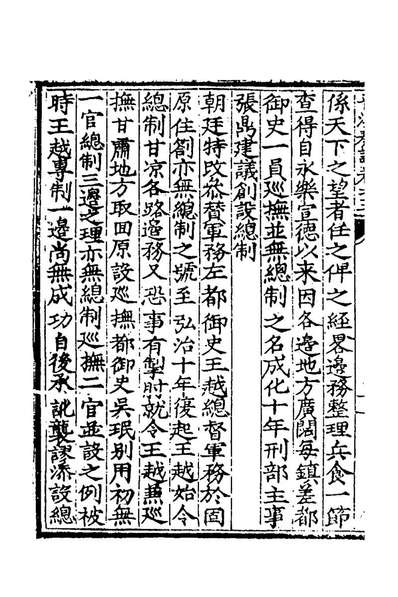 係天下之望者任之俾之經畧邊務整理兵食一節
查得自永樂宣德以來因各邊地方廣闊每鎮差都
御史一員巡撫並無總制之名成化十年刑部主事
張鼎建議創設總制
朝廷特改叅督軍務左都御史王越總督軍務於固
原住劄亦無總制之號至弘治十年復起王越始令
總制甘凉各路邊務又恐事有掣肘就令王越兼巡
撫甘肅地方取回原設巡撫都御史吳珉別用初無
一官總制三邊之理亦無總制巡撫二官並設之例彼
時王越專制一邊尚無成功自後承訛襲謬添設總